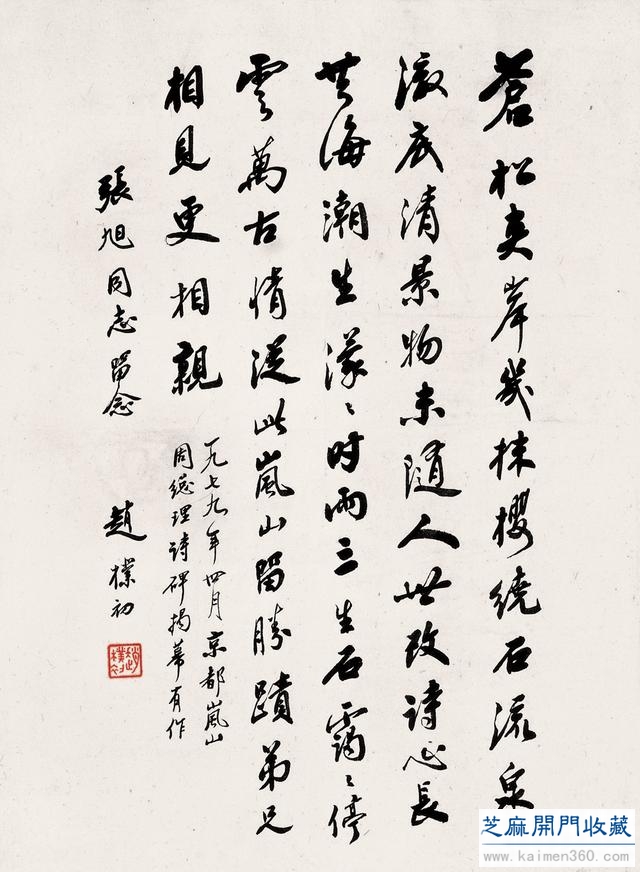 蒼松夾岸幾株櫻繞石流泉
澈底清景物未隨人世改詩心長
共海潮生濛〻時雨三生石靄〻停
雲萬古情從此嵐山留勝蹟弟兄
相見更相親
一九七九年四月京都嵐山
周總理詩碑揭幕有作
張旭同志留念
趙樸初
趙樸初
芝麻開門收藏
www.kaimen360.com